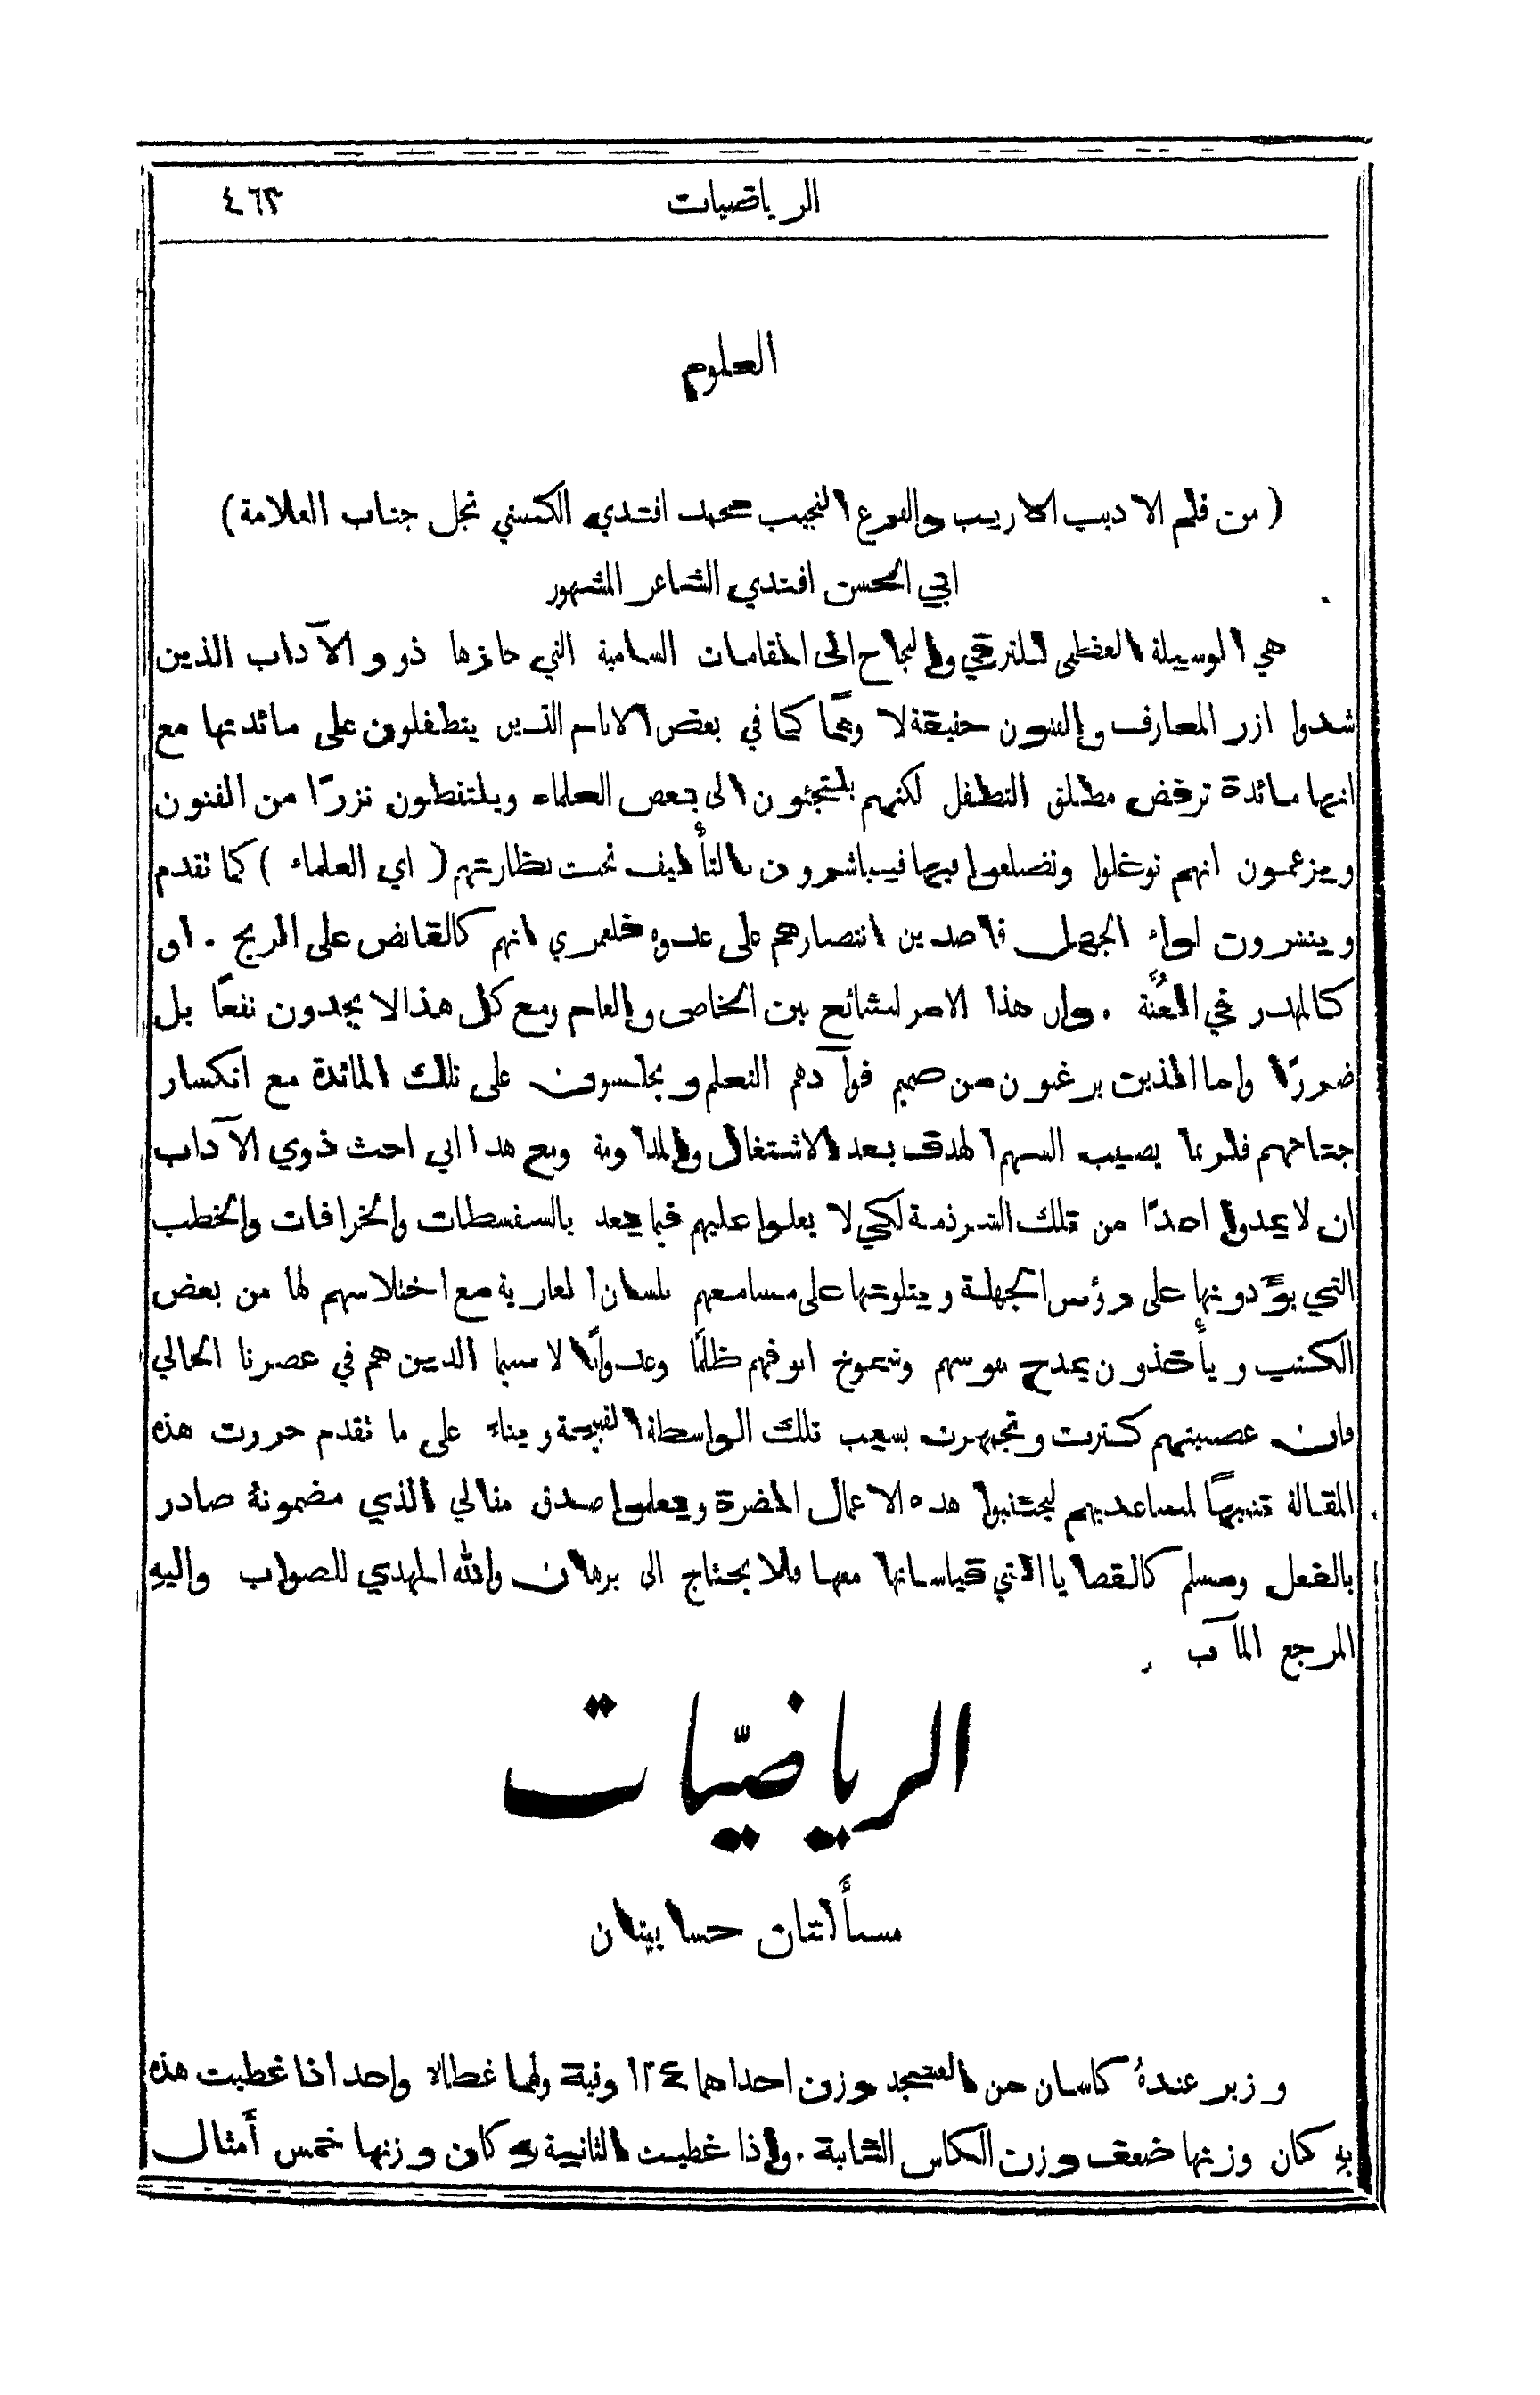 الرياضيات ٤٦٣
العلوم
(من قلم الاديب الاريب والفرع النجيب محمد افندي الكستي نجل جناب العلامة)
ابي الحسن افندي الشاعر المشهور
هي الوسيلة العظمى للترقي والنجاح الى المقامات السامية التي حازها ذوو الآداب الذين
شدوا ازر المعارف والفنون حقيقة لا وهمًا كما في بعض الانام الذين يتطفلون على مائدتها مع
انها مائدة ترفض مطلق التطفل لكنهم يلتجئون الى بعض العلماء ويلتقطون نزرًا من الفنون
ويزعمون انهم توغلوا وتضلعوا فيها فيباشرون بالتأليف تحت نظارتهم (اي العلماء) كما تقدم
وينشرون لواء الجهل قاصدين انتصارهم على عدوه فلعمري انهم كالقابض على الريح . او
كالهدر في العُنَّة . وان هذا الامر لشائع بين الخاص والعام ومع كل هذا لا يجدون نفعًا بل
ضررًا واما الذين يرغبون من صميم فوآدهم التعلم ويجلسون على تلك المائدة مع انكسار
جناحهم فلربما يصيب السهم الهدف بعد الاشتغال والمداومة ومع هذا اني احث ذوي الآداب
ان لا يمدوا احدًا من تلك الشرذمة لكي لا يعلوا عليهم فيما بعد بالسفسطات والخرافات والخطب
التي يؤدونها على رؤس الجهلة ويتلونها على مسامعهم بلسان العارية مع اختلاسهم لها من بعض
الكتب ويأخذون بمدح نفوسهم وشموخ انوفهم ظلمًا وعدوانًا لا سيما الذين هم في عصرنا الحالي
فان عصبيتهم كثرت وتجمهرت بسبب تلك الواسطة القبيحة وبناء على ما تقدم حررت هذه
المقالة تنبيهًا لمساعديهم ليجتنبوا هذه الاعمال المضرة ويعلموا صدق مقالي الذي مضمونهُ صادر
بالفعل ومسلم كالقضايا التي قياساتها معها فلا يحتاج الى برهان والله المهدي للصواب واليهِ
المرجع المآب .
الرياضيّات
مسأَلتان حسابيتان
وزير عندهُ كاسان من العسجد وزن احداهما ١٢٤ وقية ولهما غطاء واحد اذا غطيت هذه
بهِ كان وزنها ضعف وزن الكاس الثانية . واذا غطيت الثانية بهِ كان وزنها خمس أَمثال